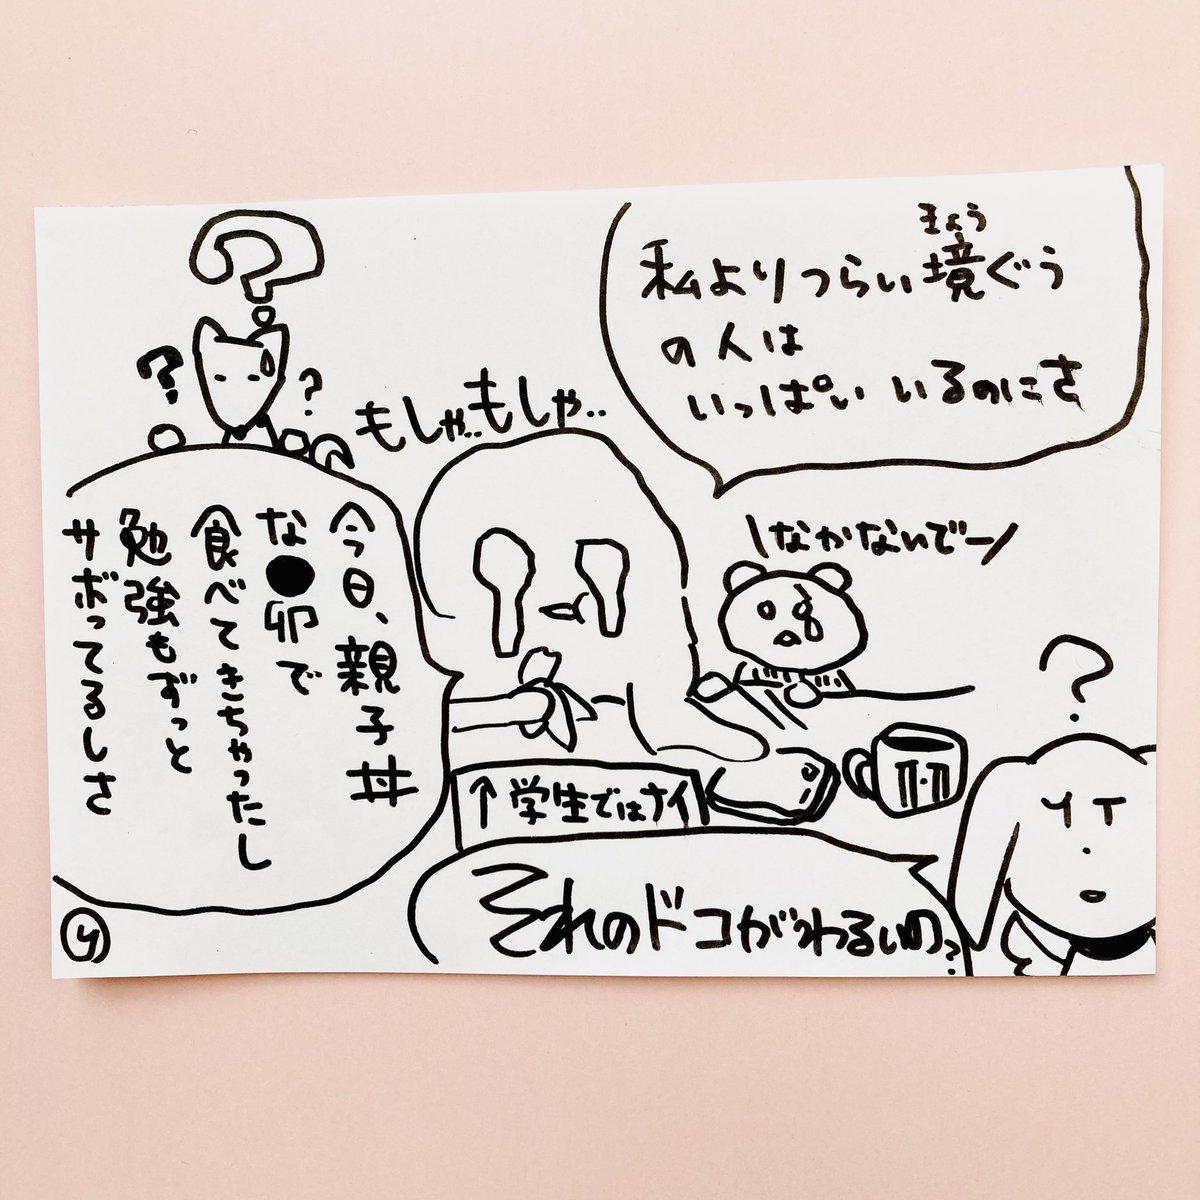 きょう
私よりつらい境ぐう
の人は
いっぱいいるのにさ
もしゃ..もしゃ..
\なかないでー/
今日、親子丼
な●卵で
食べてきちゃったし
勉強もずっと
サボってるしさ
↑学生ではナイ
それのドコがわるいの?
?
?
?
?